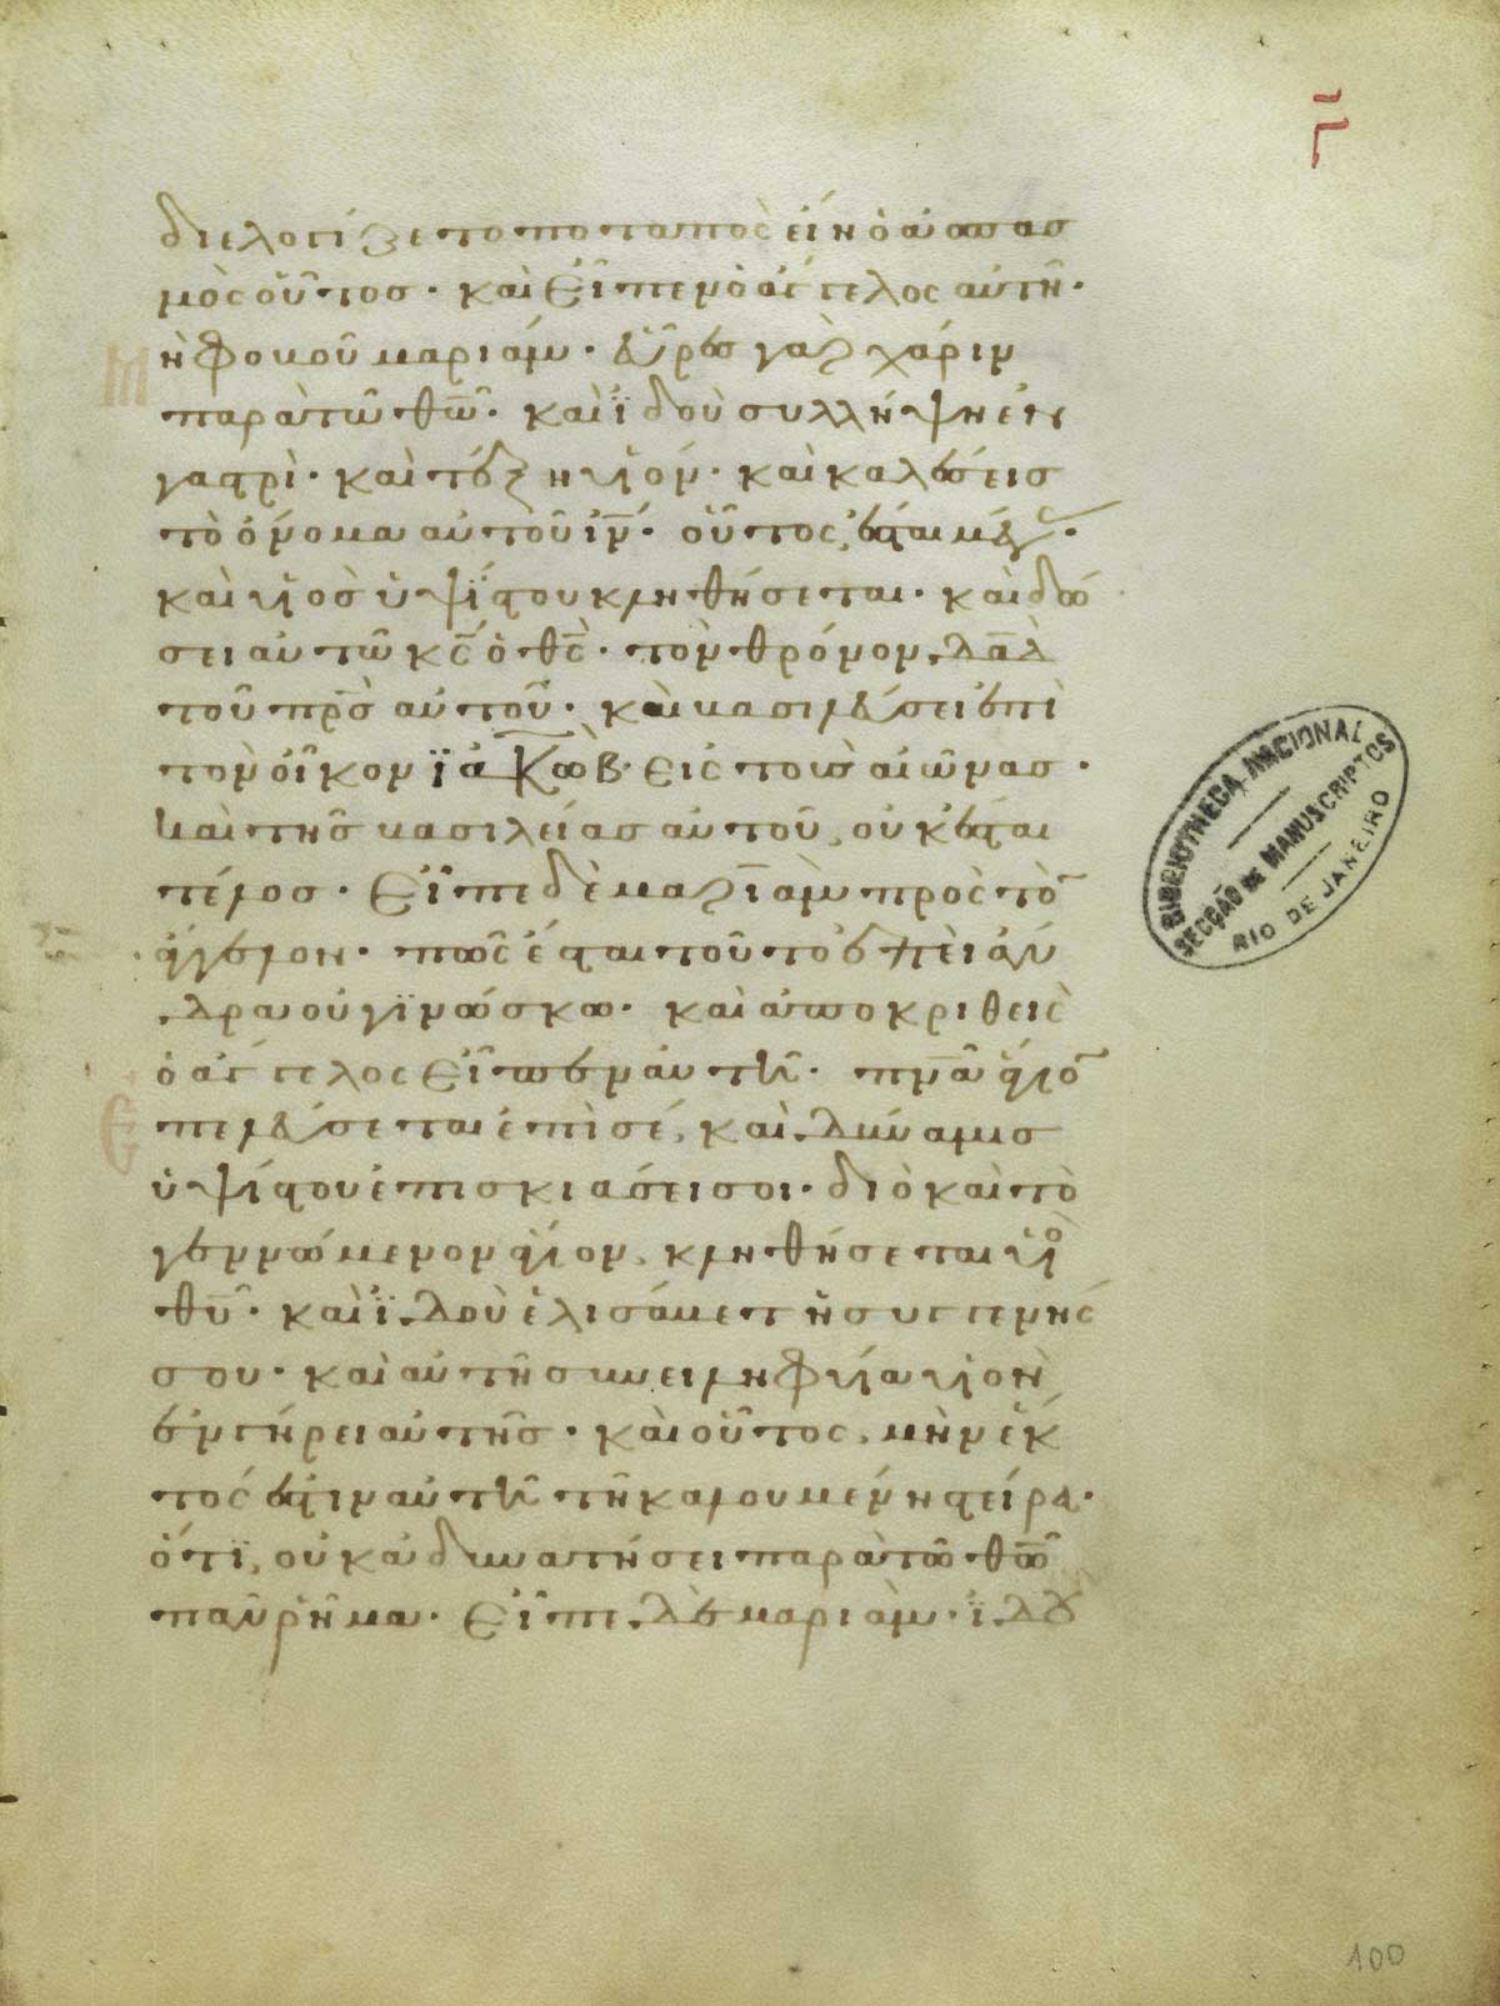 Γ̄
διελογίζετο ποταπὸς εἴη ὁ ἀσπασ
μὸς οὗτοσ· καὶ εἶπεν ὁ ἄγγελος αὐτῆ·
μὴ φοβοῦ μαριάμ· εὗρεσ γὰρ χάριν
παρὰ τῶ θ̄ω̄· καὶ ϊδοὺ συλλήψη ἐν
γαστρὶ· καὶ τέξη υἱόν· καὶ καλέσεισ
τὸ ὄνομα αὐτοῦ ῑν̄· οὗτος ἔσται μέγας·
καὶ υἱὸσ ὑψίστου κληθήσεται· καὶ δώ
σει αὐτῶ κ̄ς̄ ὁ θ̄ς̄· τὸν θρόνον δ̄ᾱδ̄
τοῦ π̄ρ̄σ̄ αὐτοῦ· καὶ βασιλεύσει ἐπὶ
τὸν οἶκον ϊακὼβ· εἰς τοὺσ αἰῶνασ·
καὶ τῆσ βασιλείασ αὐτοῦ, οὐκ ἔσται
τέλοσ· Εἶπε δὲ μαριὰμ πρὸς τὸ̄
ἄγγελον· πῶς ἔσται τοῦτο ἐπεὶ ἄν
δρα οὐ γϊνώσκω· καὶ ἀποκριθεὶς
ὁ ἄγγελος εἶπεν αὐτῆ· π̄ν̄ᾱ ἅγιο̄
ἐπελεύσεται ἐπὶ σέ, καὶ δύναμισ
ὑψίστου ἐπισκιάσει σοι· διὸ καὶ τὸ
γεννώμενον ἅγιον, κληθήσεται υἱο
θ̄ῡ· καὶ ϊδοὺ ἐλισάβετ ἡ συγγενής
σου· καὶ αὐτὴ συνειληφυῖα υἱὸν
ἐν γήρει αὐτῆσ· καὶ οὗτος, μὴν ἕκ
τός ἐστιν αὐτῆ τῆ καλουμένη στείρα·
ὅτϊ, οὐκ ἀδυνατήσει παρὰ τῶ θ̄ω̄
πᾶν ῥῆμα· Εἶπε δὲ μαριὰμ· ϊδου
BIBLIOTHECA NACIONAL
SECÇÃO DE MANUSCRIPTOS
RIO DE JANEIRO
100